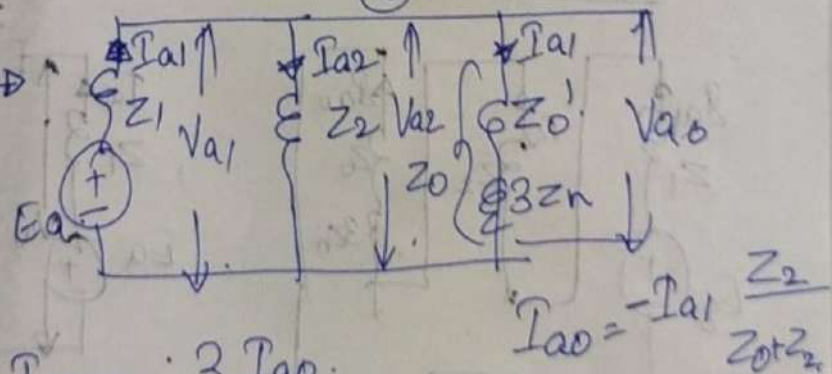 Ia1 Ia2 Ia1
Z1 Va1 Z2 Va2 Z0' Va0
Z0 3Zn
+
-
Ea
Ia0 = -Ia1 Z2 / Z0+Z2
3 Ia0